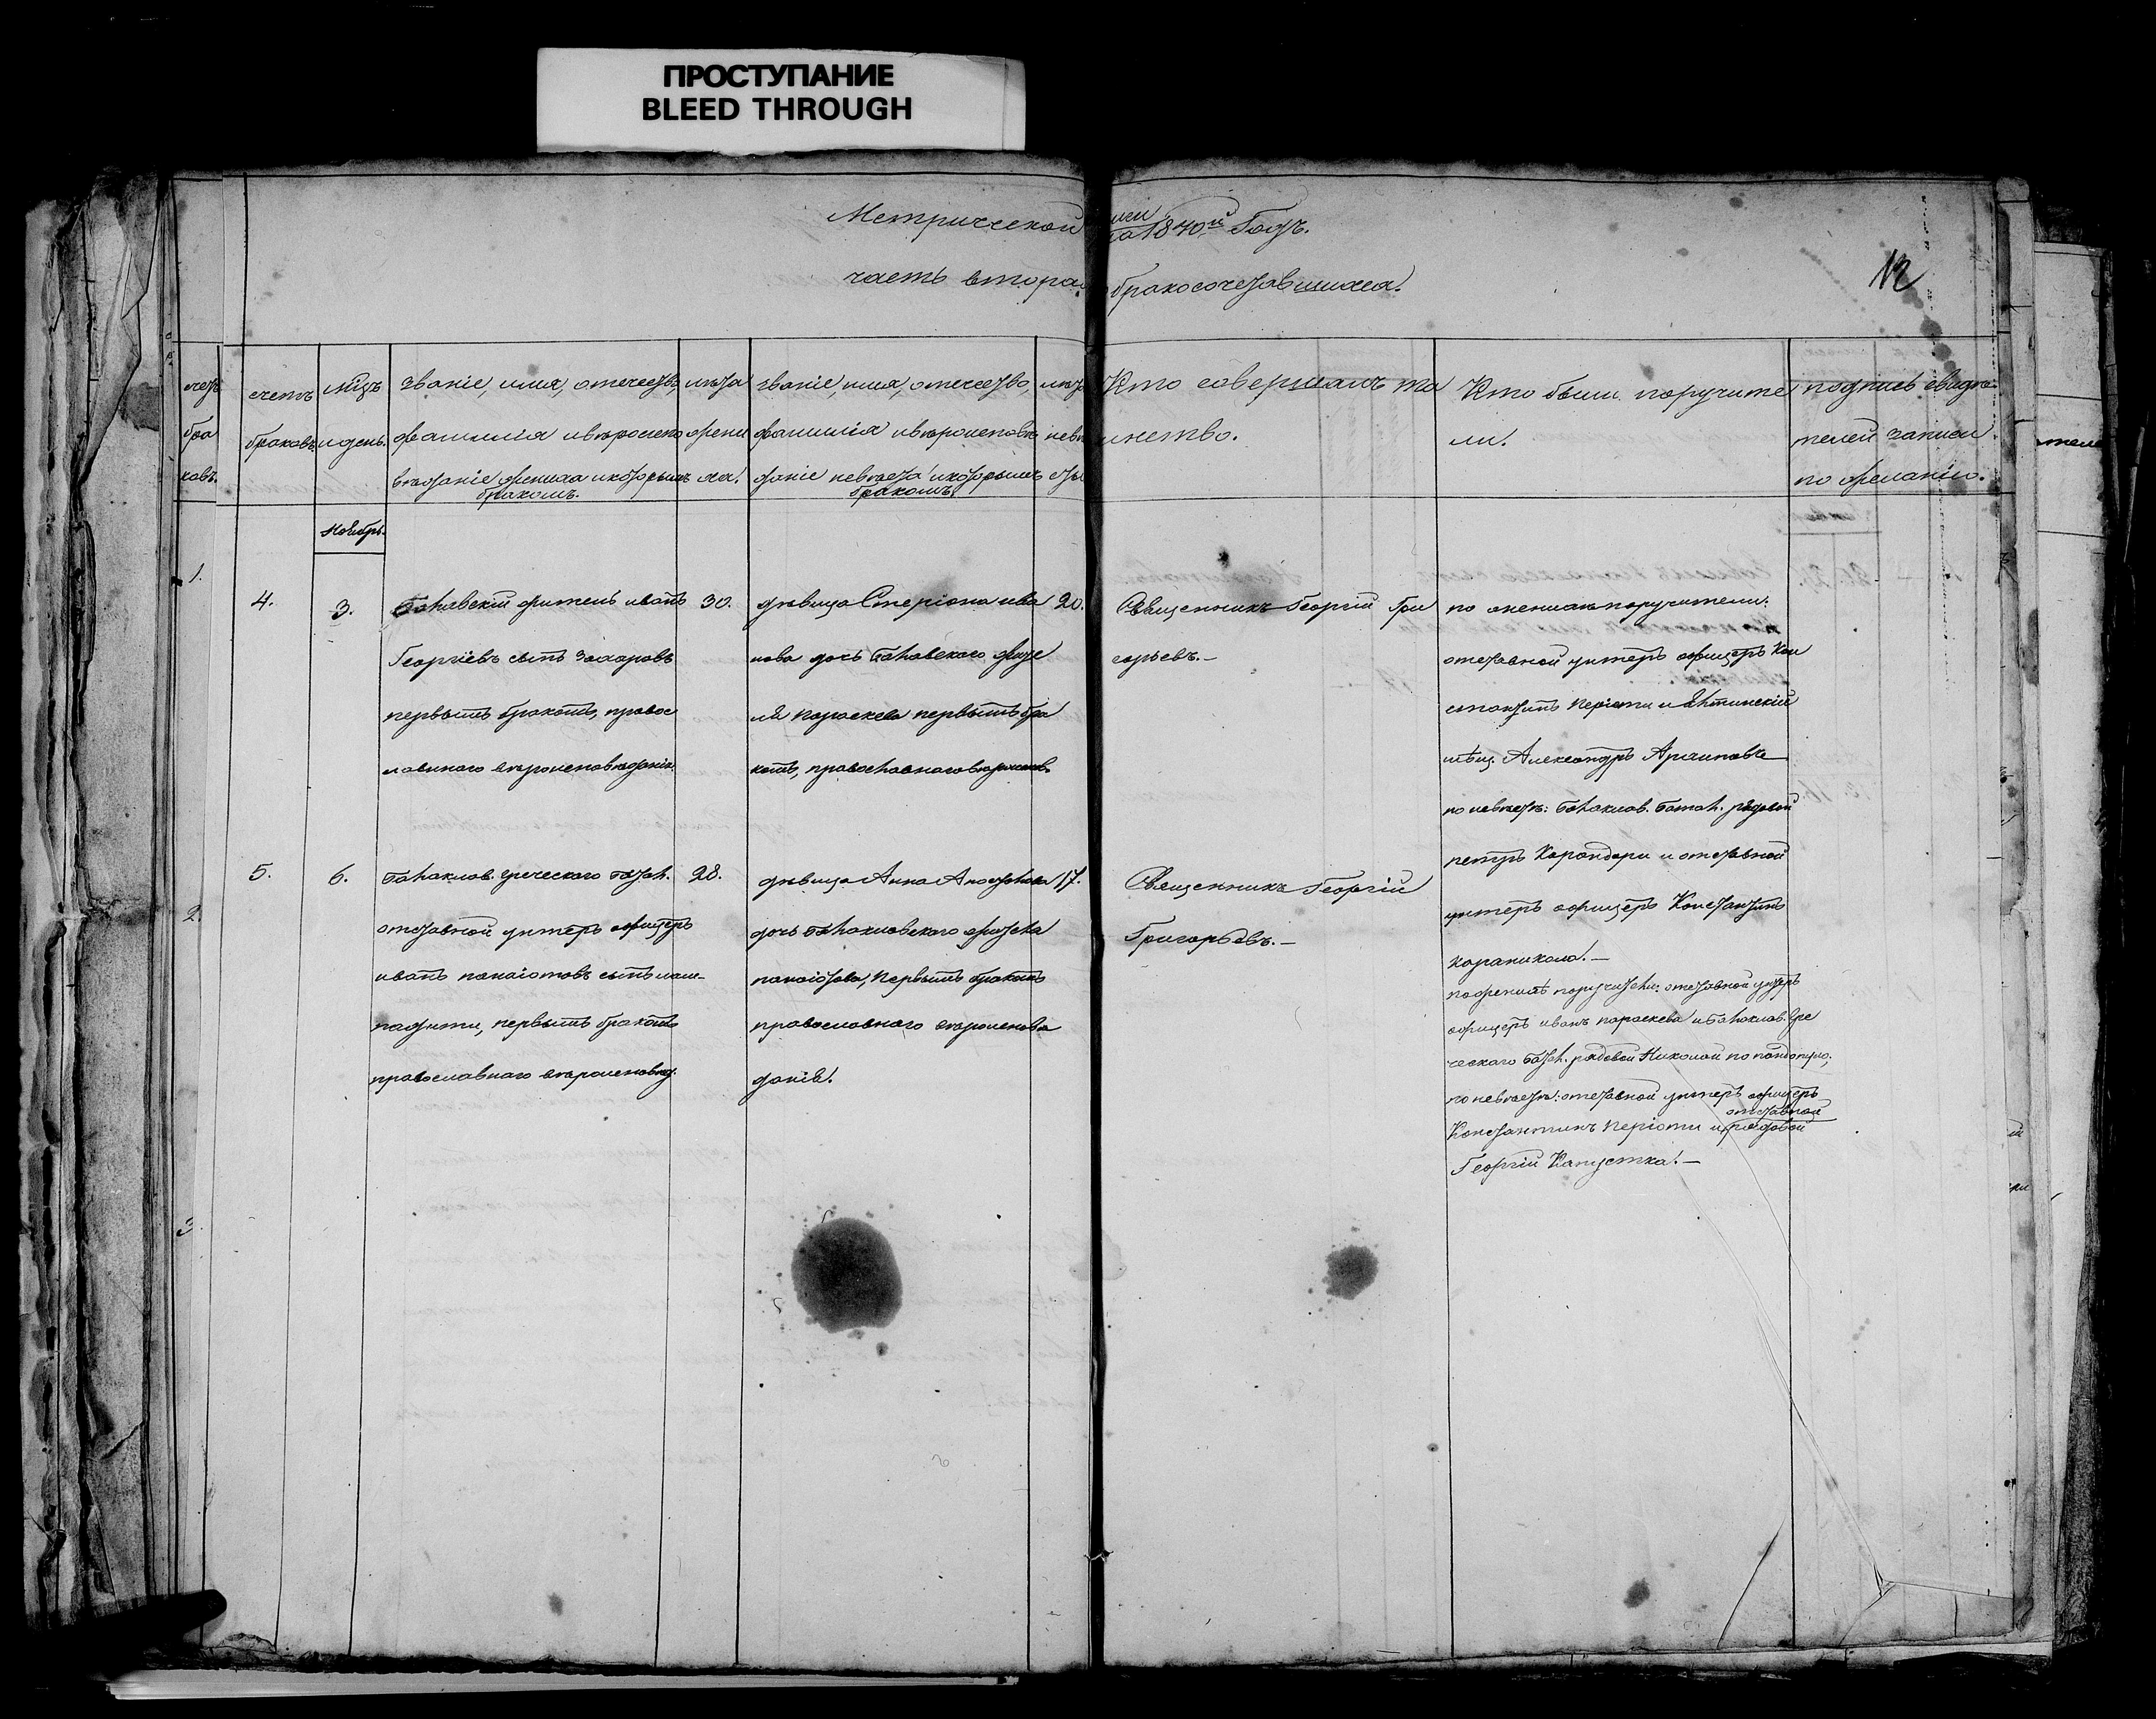 ПРОСТУПАНИЕ
BLEED THROUGH
Метрической
часть вторая
на 1840й Годъ.
бракосочетавшихся.
12
счетъ
бра
ковъ.
счетъ
браковъ.
мѣцъ
и день.
Званіе, имя, отечество,
фамилія и вѣроиспо
вѣданіе жениха и которымъ
бракомъ.
лѣта
жени
ха.
Званіе, имя, отечество,
фамилія и вѣроисповѣ
даніе невѣсты и которымъ
бракомъ.
лѣта
невѣ
сты
Кто совершалъ та
инство.
Кто были поручите
ли.
подпись свидѣ
телей записи
по желанію.
Ноябрь.
1.
2.
3.
4.
3.
житель иванъ
Георгіевъ сынъ Захаровъ
первымъ бракомъ, правос
лавнаго вѣроисповѣданія.
30.
дѣвица Стеріона ива
нова дочь жите
ля Параскева первымъ бра
комъ, православнаго вѣроисповѣд.
20.
Священникъ Георгій Гри
горьевъ.—
по женихѣ поручители:
отставной унтеръ офицеръ Кон
стантинъ Періоти и Ялтинскій
мѣщ. Александръ Архиповъ
по невѣстѣ: Балаклав. Батал. рядовой
петръ и отставной
унтеръ офицеръ Константинъ
Караникола.—
5.
6.
Балаклав. греческаго батал.
отставной унтеръ офицеръ
иванъ панаіотовъ сынъ
первымъ бракомъ
православнаго вѣроисповѣд.
28.
дѣвица Анна Апостолова
дочь Балаклавскаго жителя
панаіотова, первымъ бракомъ
православнаго вѣроисповѣ
данія.
17.
Священникъ Георгій
Григорьевъ.—
по женихѣ поручители: отставной унтеръ
офицеръ иванъ параскева и Балаклав. Гре
ческаго батал. рядовой Николай
по невѣстѣ: отставной унтеръ офицеръ
отставной
Константинъ Періоти и рядовой
Георгій Капустка.—